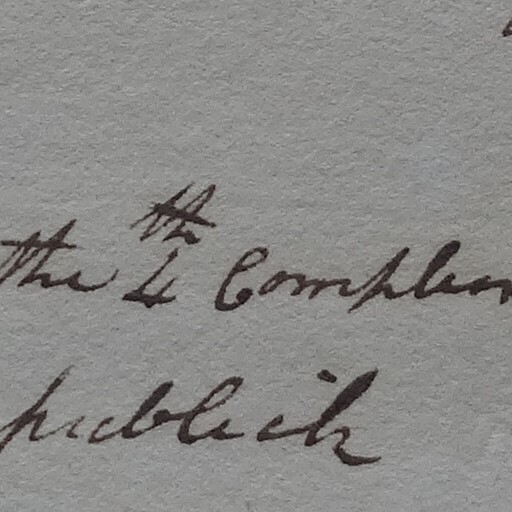 the 4th Complem
publick